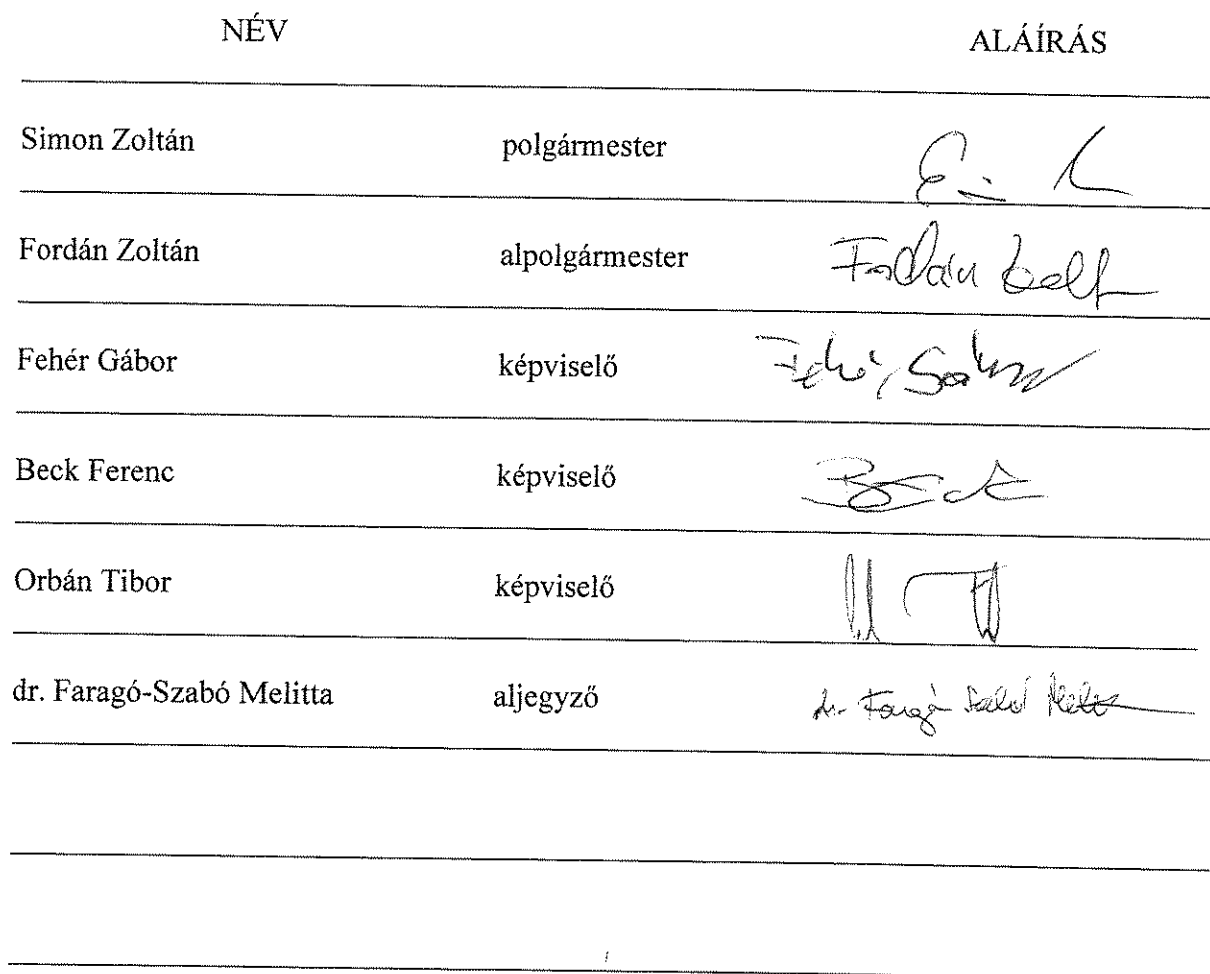 NÉV ALÁÍRÁS
Simon Zoltán polgármester
Fordán Zoltán alpolgármester Fordán Zolt
Fehér Gábor képviselő Fehér Gábor
Beck Ferenc képviselő Beck
Orbán Tibor képviselő
dr. Faragó-Szabó Melitta aljegyző dr. Faragó Szabó Melitta